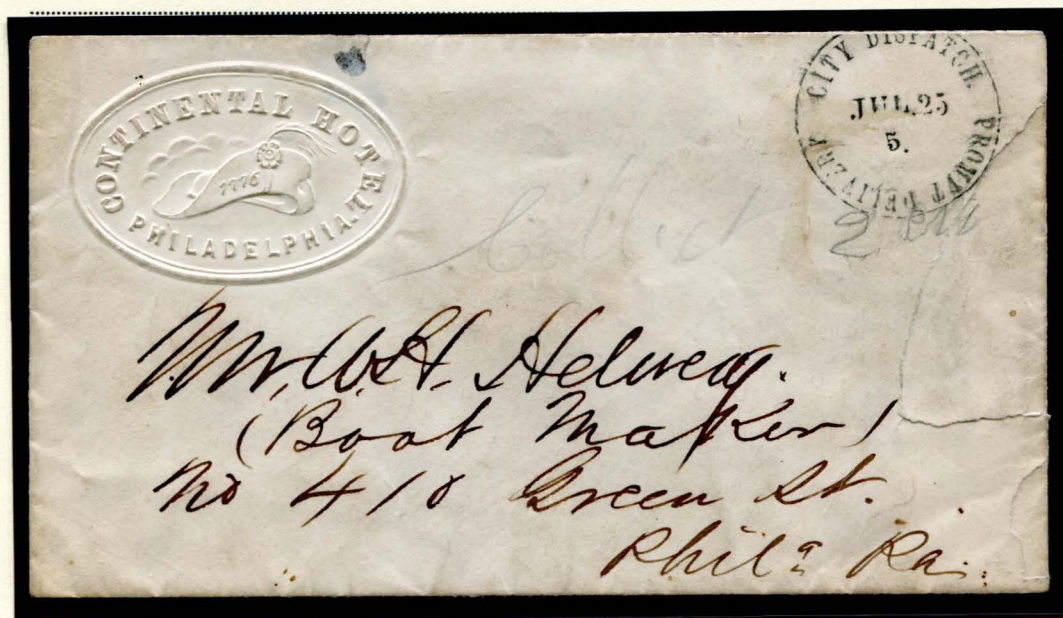 CONTINENTAL HOTEL
1776
PHILADELPHIA.
CITY DISPATCH.
JUL. 25
5.
PROMPT DELIVERY
Collect
2
Mr. W. H. Helweg.
(Boot Maker)
No 410 Green St.
Phila Pa.